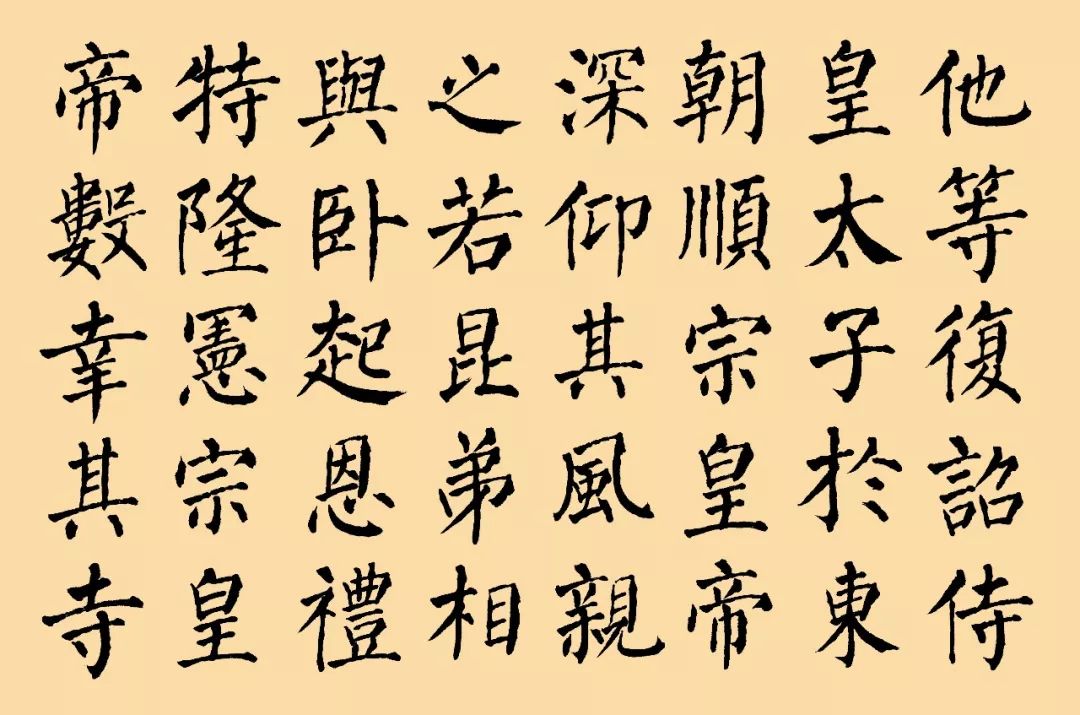 他等復詔侍
皇太子於東
朝順宗皇帝
深仰其風親
之若昆弟相
與卧起恩禮
特隆憲宗皇
帝數幸其寺